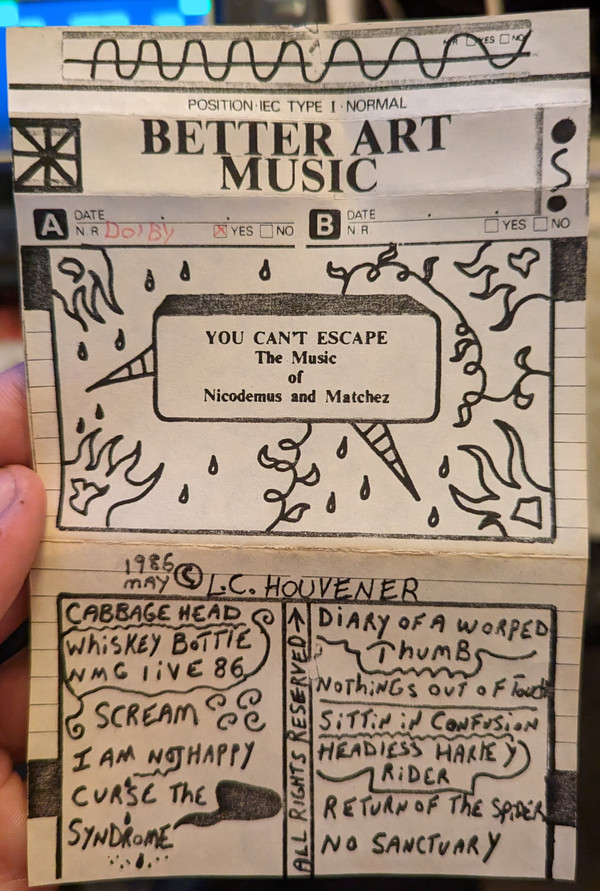 N.R □ YES □ NO
POSITION·IEC TYPE I·NORMAL
BETTER ART
MUSIC
A DATE . .
N.R DOlBY ☒ YES □ NO
B DATE . .
N.R □ YES □ NO
YOU CAN'T ESCAPE
The Music
of
Nicodemus and Matchez
1986
MAY © L.C. HOUVENER
CABBAGE HEAD
WHiSKEY BOTTlE
NMG liVE 86
SCREAM
I AM NOT HAPPY
CURSE THE
SYNDROME
ALL RIGHTS RESERVED
DiARY OF A WORPED
THUMB
NOTHiNGS OUT OF TOUCH
SiTTiN iN CONFUSiON
HEADlESS HARlEY
RiDER
RETURN OF THE SPiDER
NO SANCTUARY